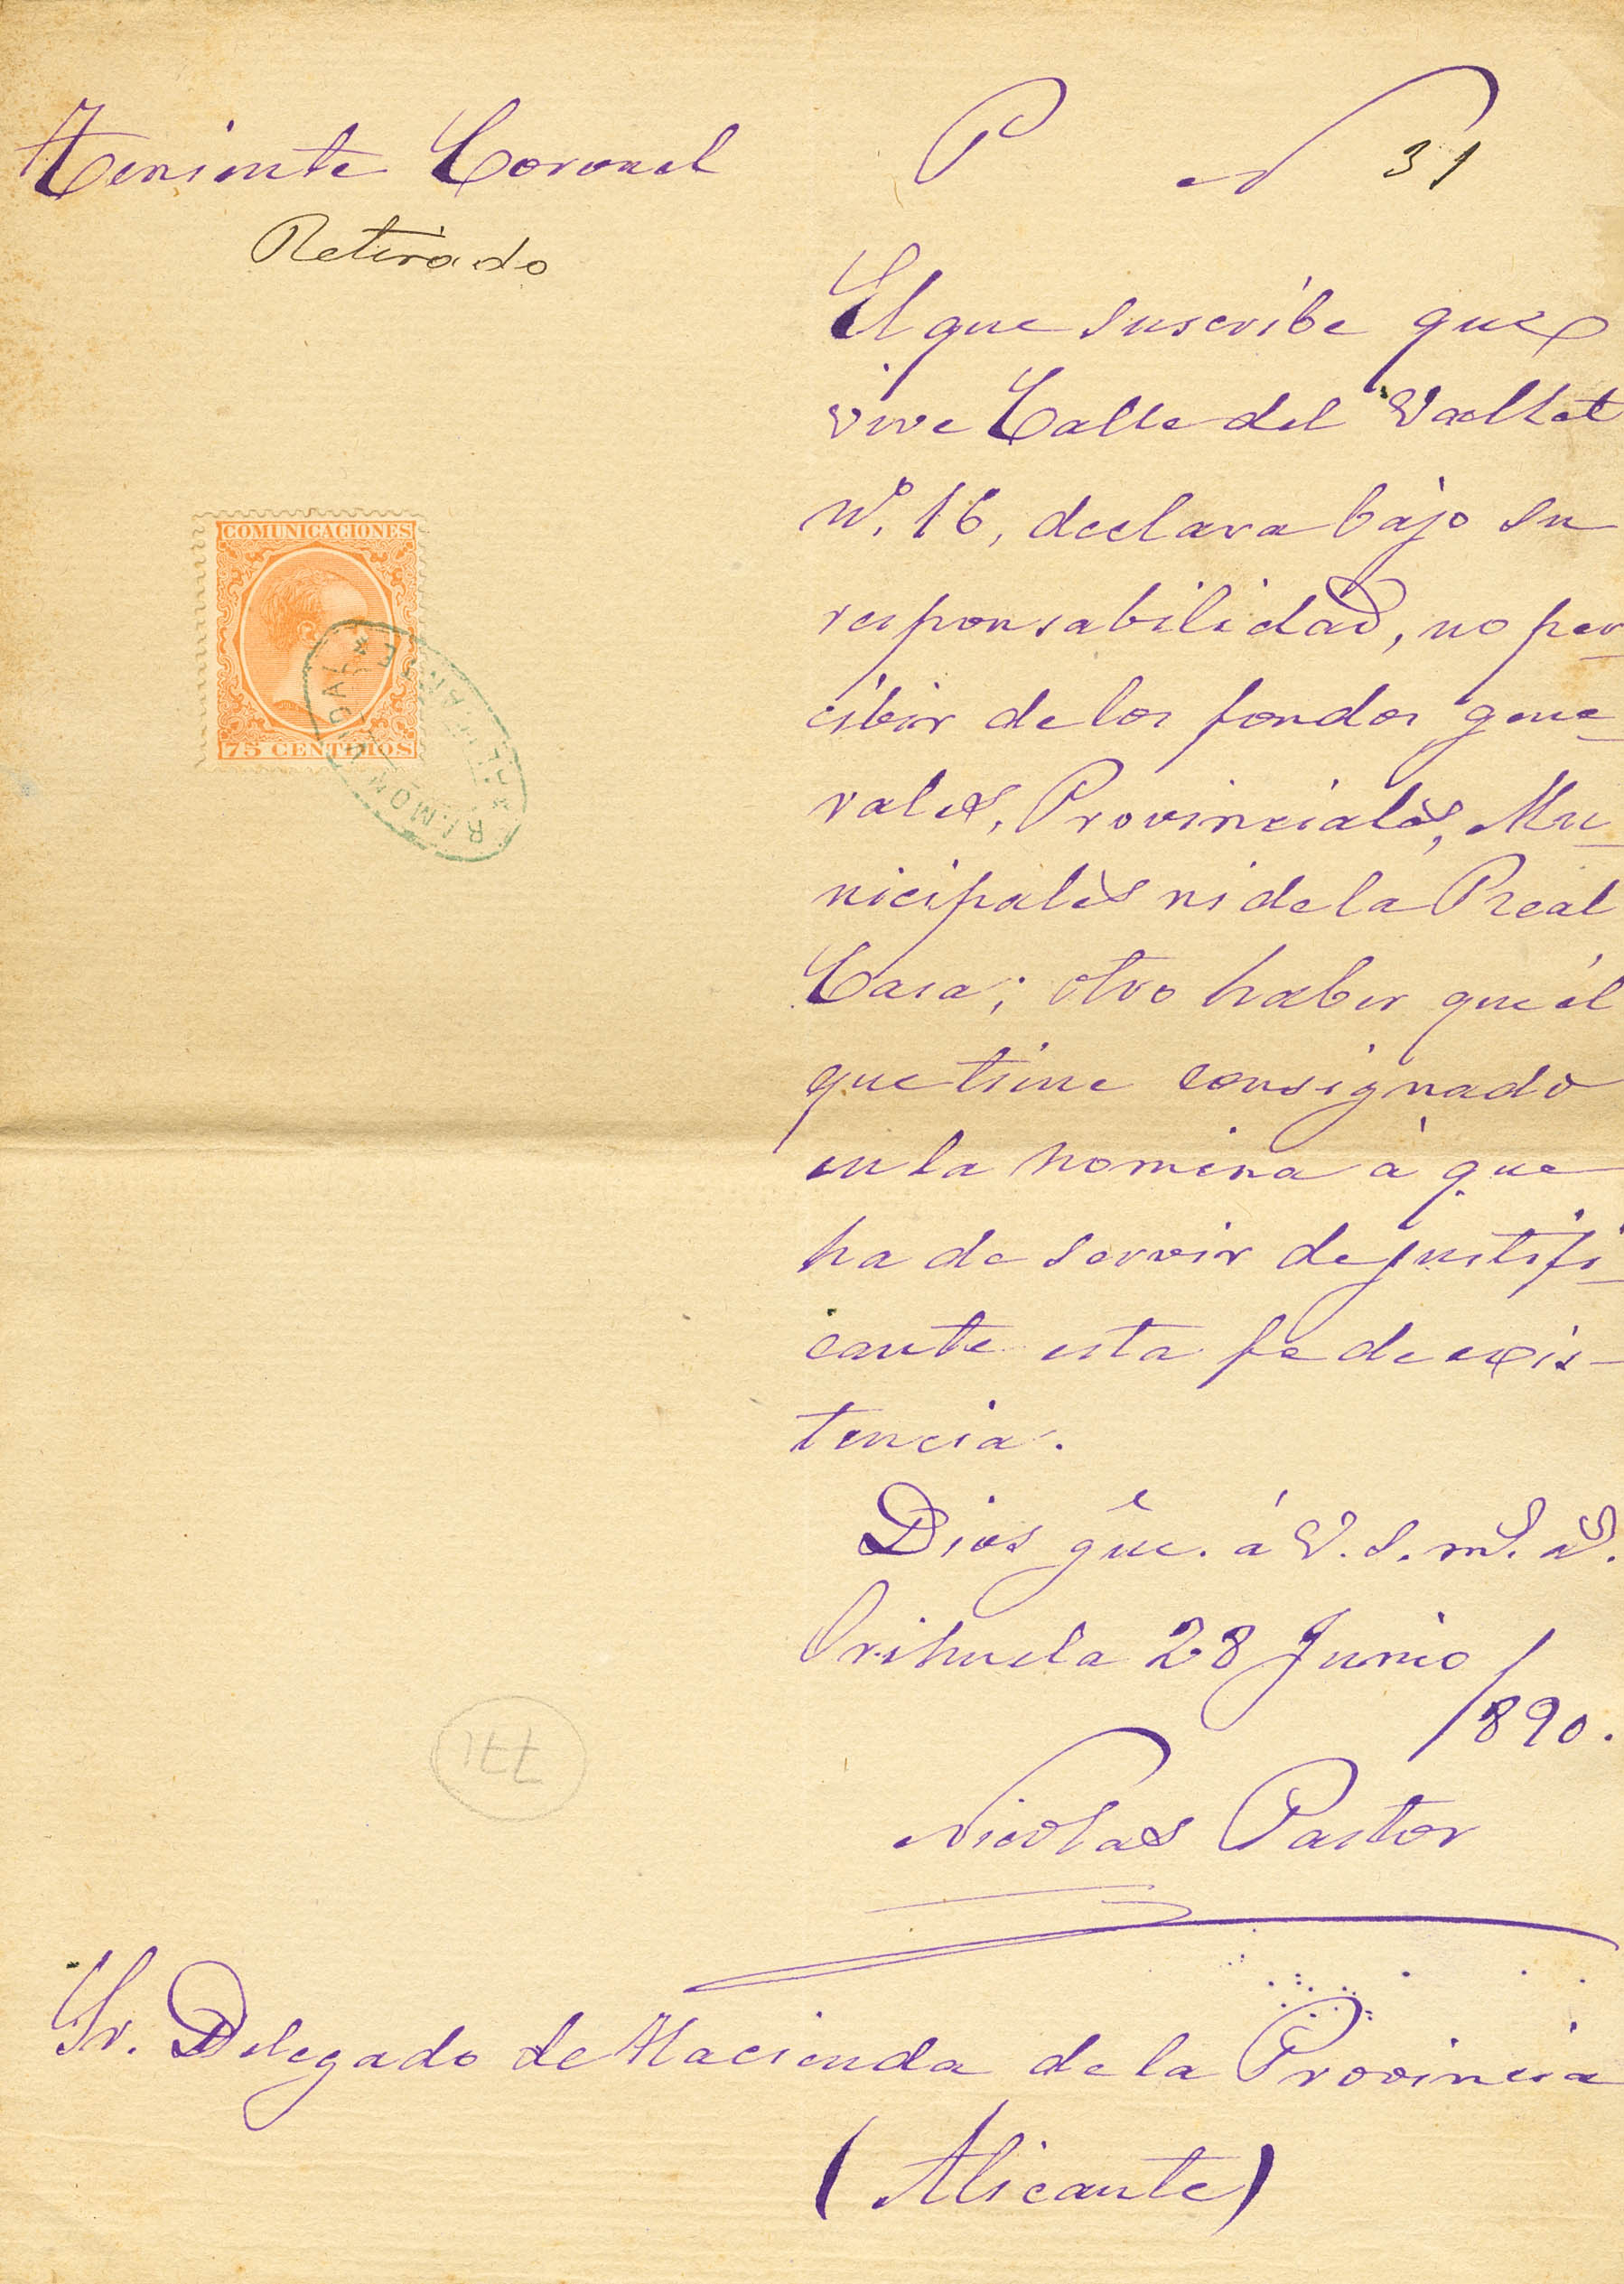 Teniente Coronel
P N 31
Retirado
El que suscribe que
vive Calle del Vallet
nº. 16, declara bajo su
responsabilidad, no per
cibir de los fondos gene
rales, Provinciales, Mu
nicipales ni de la Real
Casa; otro haber que él
que tiene consignado
en la nomina à que
ha de servir de justifi
cante esta fe de exis-
tencia.
Dios gûe. á V.S. mS. aS.
Orihuela 28 Junio
1890.
Nicolas Pastor
Sr. Delegado de Hacienda de la Provincia
(Alicante)
COMUNICACIONES
75 CENTIMOS
771